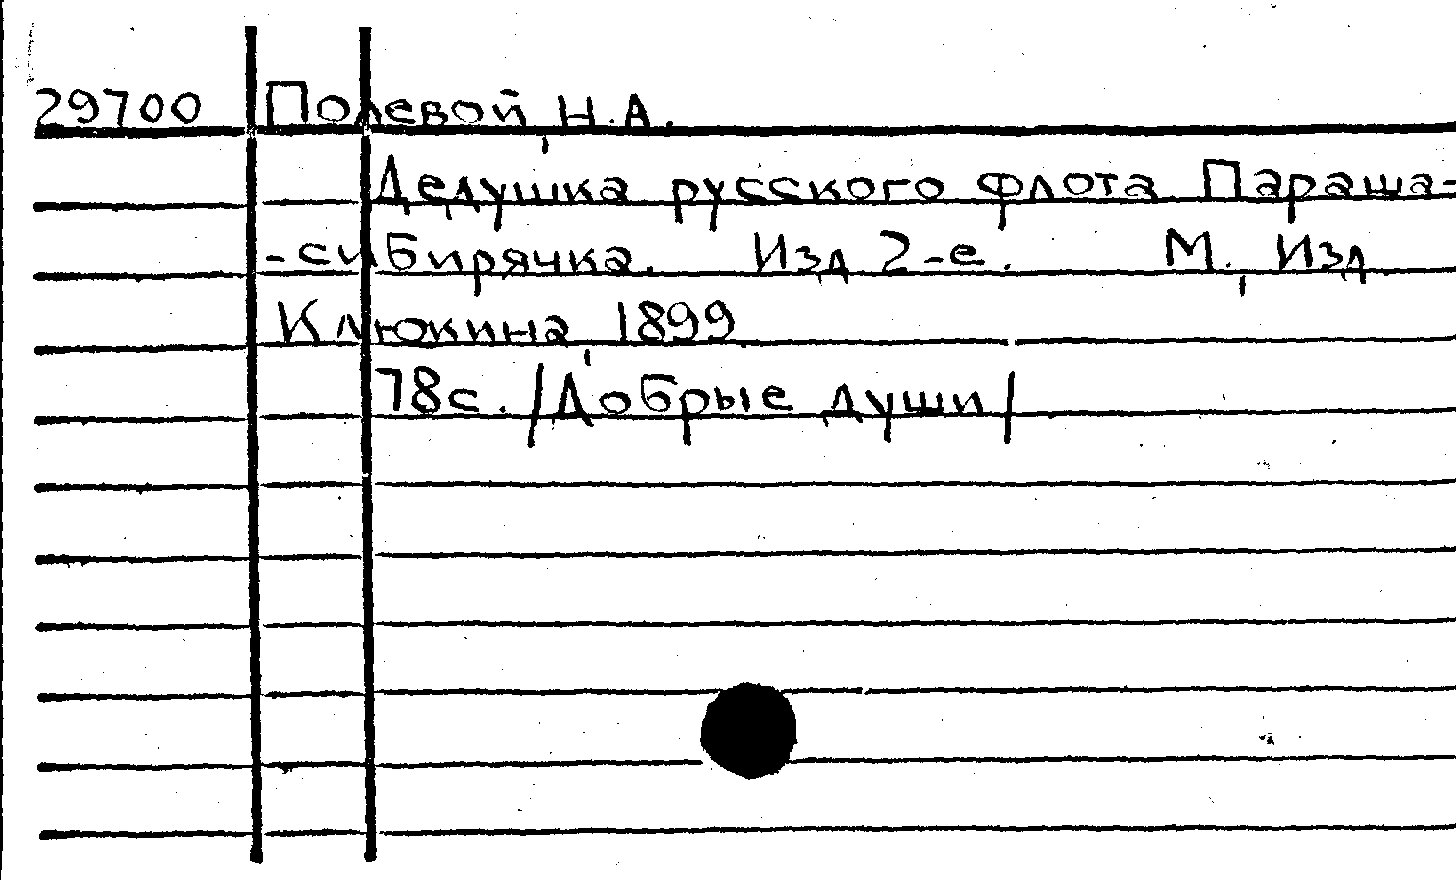 29700 Полевой, Н.А.
Дедушка русского флота Параша-
-сибирячка. Изд 2-е. М., Изд
Клюкина, 1899
78с. /Добрые души/